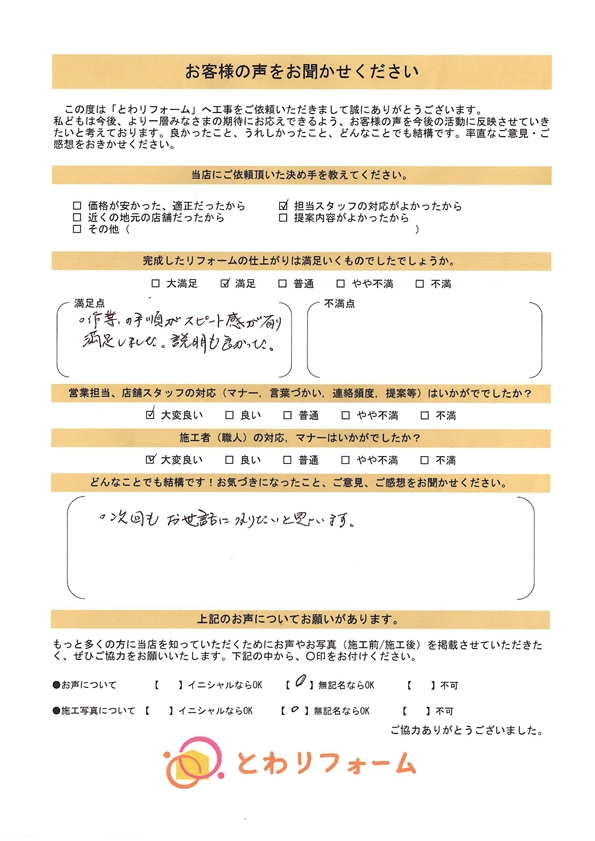 お客様の声をお聞かせください
この度は「とわリフォーム」へ工事をご依頼いただきまして誠にありがとうございます。
私どもは今後、より一層みなさまの期待にお応えできるよう、お客様の声を今後の活動に反映させていき
たいと考えております。良かったこと、うれしかったこと、どんなことでも結構です。率直なご意見・ご
感想をおきかせください。
当店にご依頼頂いた決め手を教えてください。
□ 価格が安かった、適正だったから ☑ 担当スタッフの対応がよかったから
□ 近くの地元の店舗だったから □ 提案内容がよかったから
□ その他（ ）
完成したリフォームの仕上がりは満足いくものでしたでしょうか。
□ 大満足 ☑ 満足 □ 普通 □ やや不満 □ 不満
満足点 不満点
○作業の手順がスピート感が有り
満足しました。説明も良かった。
営業担当、店舗スタッフの対応（マナー，言葉づかい，連絡頻度，提案等）はいかがでしたか？
☑ 大変良い □ 良い □ 普通 □ やや不満 □ 不満
施工者（職人）の対応，マナーはいかがでしたか？
☑ 大変良い □ 良い □ 普通 □ やや不満 □ 不満
どんなことでも結構です！お気づきになったこと、ご意見、ご感想をお聞かせください。
○次回もお世話になりたいと思います。
上記のお声についてお願いがあります。
もっと多くの方に当店を知っていただくためにお声やお写真（施工前/施工後）を掲載させていただきた
く、ぜひご協力をお願いいたします。下記の中から、〇印をお付けください。
●お声について 【 】イニシャルならOK 【○】無記名ならOK 【 】不可
●施工写真について 【 】イニシャルならOK 【○】無記名ならOK 【 】不可
ご協力ありがとうございました。
とわリフォーム